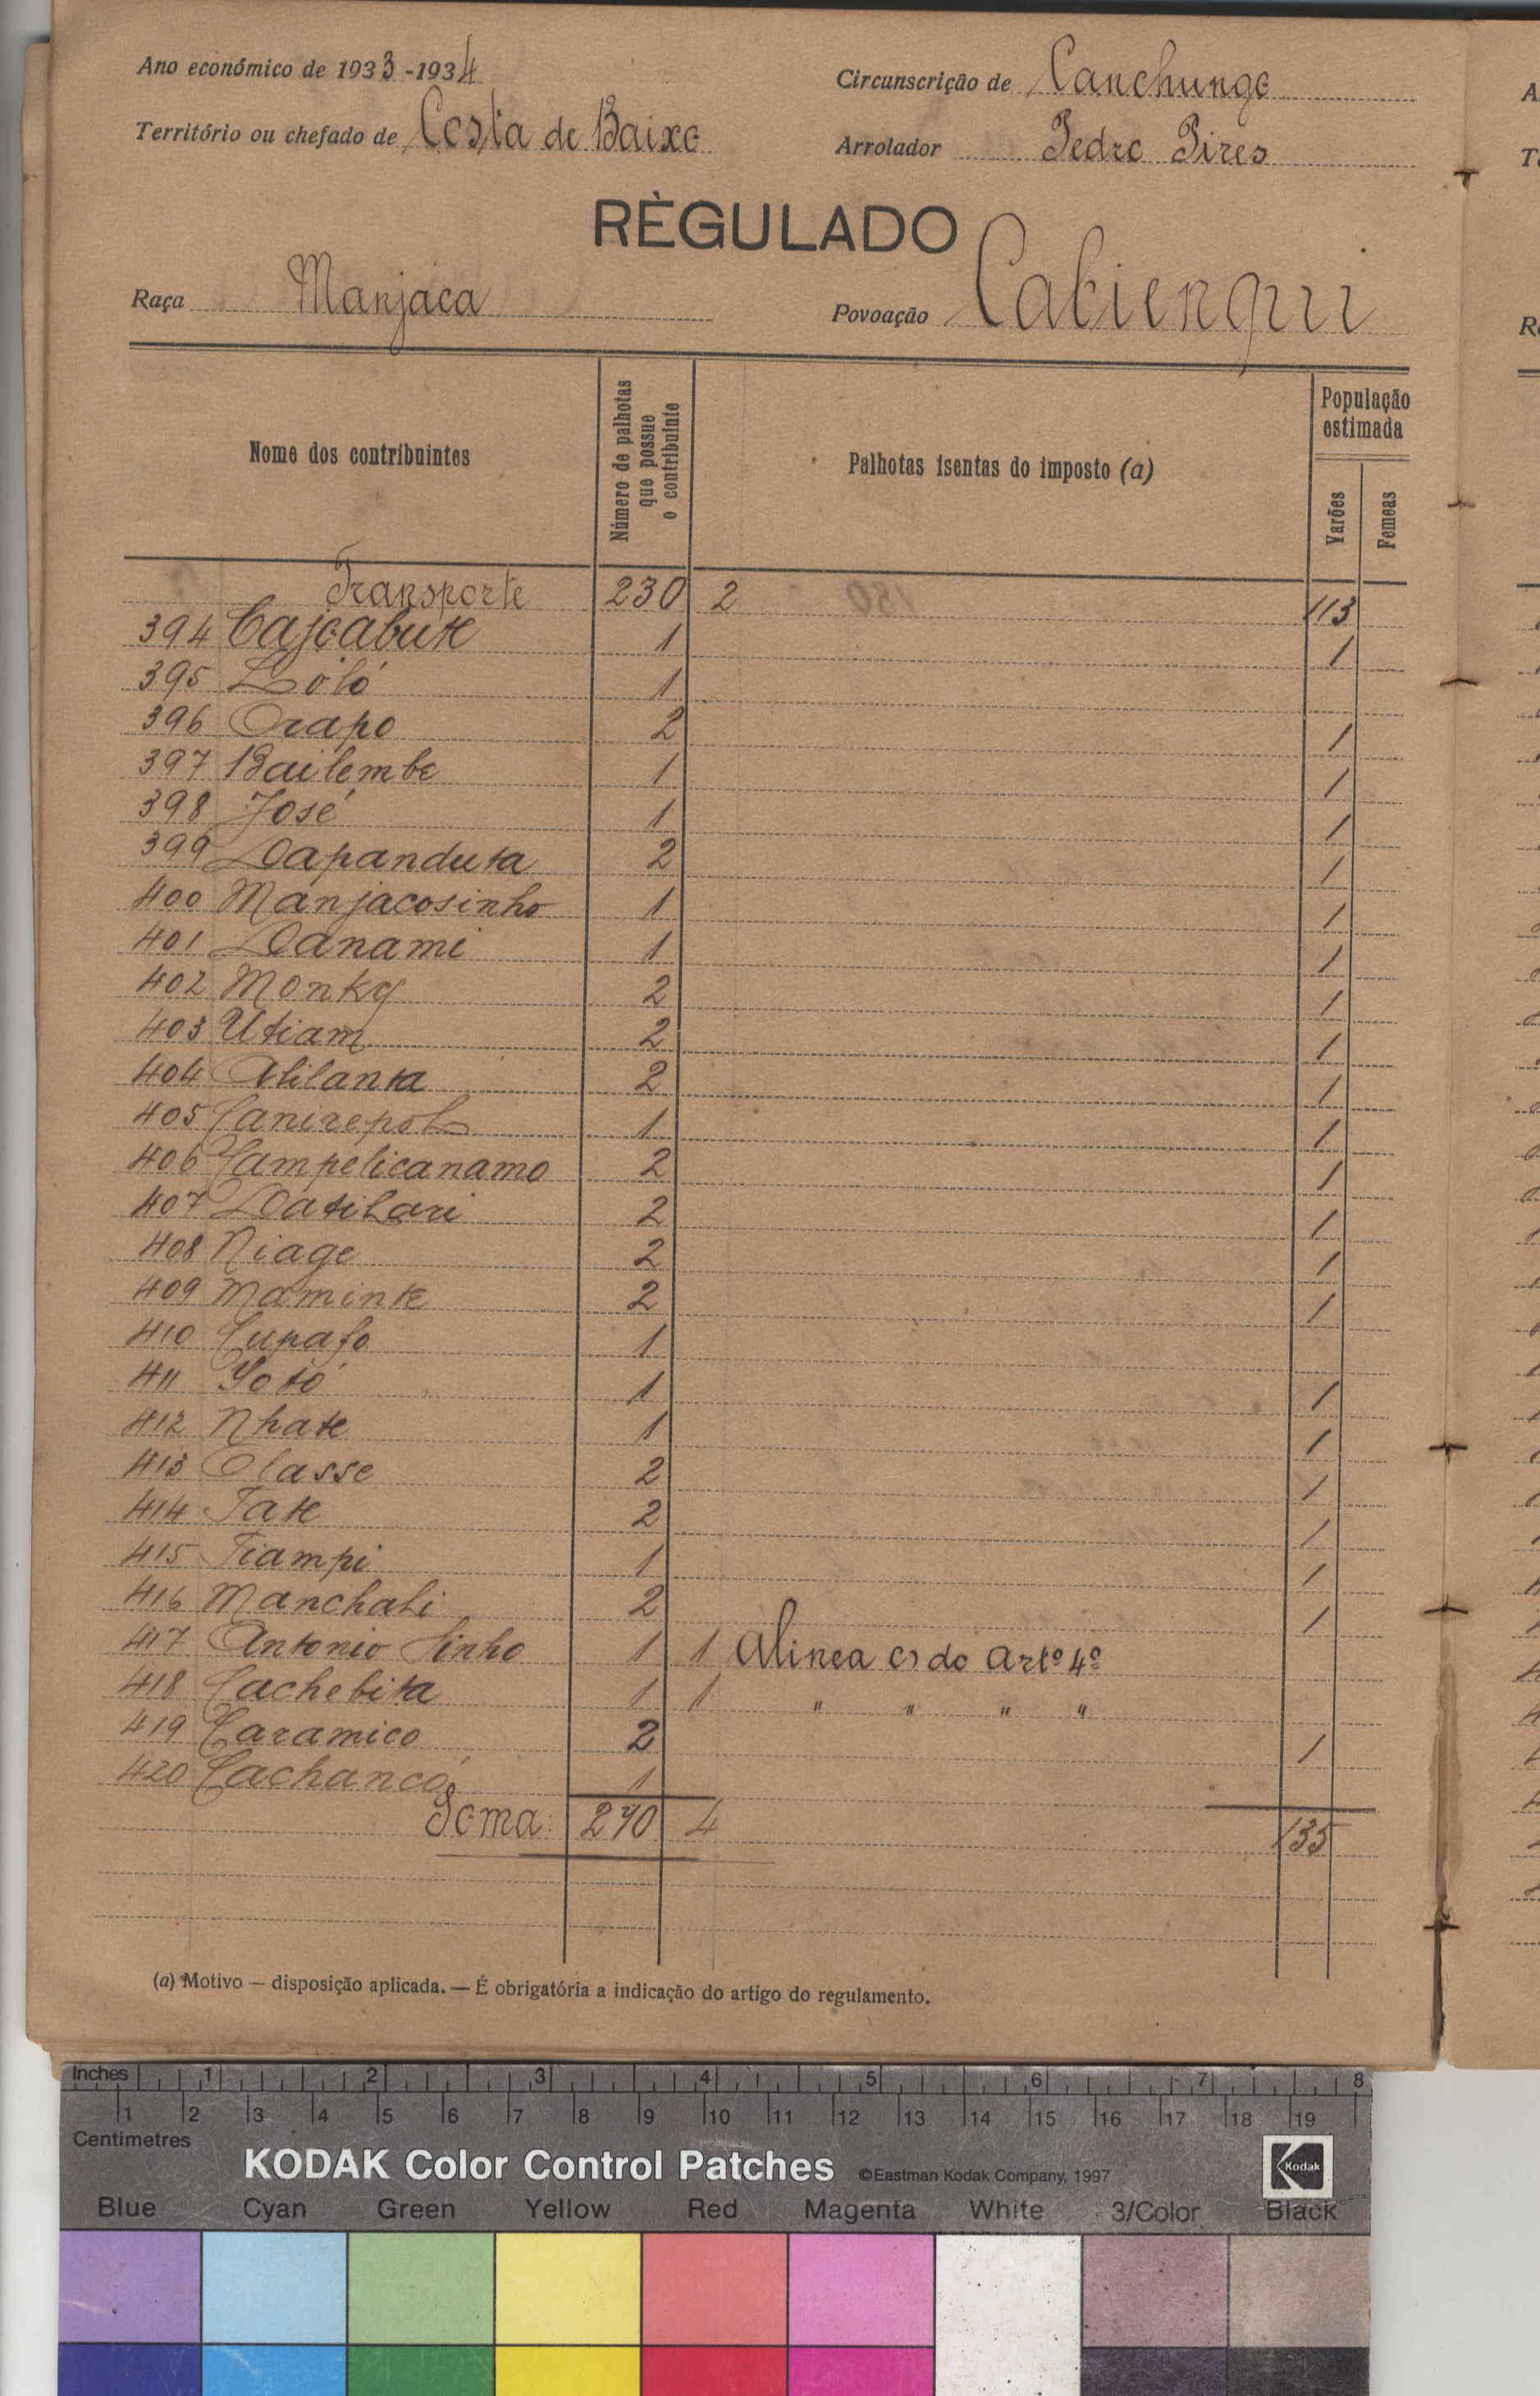 Ano económico de 1933-1934
Circunscrição de Canchungo
Território ou chefado de Costa de Baixo
Arrolador Pedro Pires
RÈGULADO
Raça Manjaca
Povoação Cabienqui
Nome dos contribuintes
Número de palhotas que possue o contribuinte
Palhotas isentas do imposto (a)
População estimada
Varões
Femeas
Transporte 230 2 113
394 Cajcabute 1 1
395 Loló 1
396 Orapo 2 1
397 Bailembe 1 1
398 José 1 1
399 Dapanduta 2 1
400 Manjacosinho 1 1
401 Danami 1 1
402 Monky 2 1
403 Utiam 2 1
404 Alilanta 2 1
405 Canirepol 1 1
406 Campelicanamo 2 1
407 Datilari 2 1
408 Niage 2 1
409 Maminte 2 1
410 Cupafo 1
411 Yotó 1 1
412 Nhate 1 1
413 Olasse 2 1
414 Tate 2 1
415 Tiampi 1 1
416 Manchali 2 1
417 Antonio Sinho 1 1 Alinea c) do Artº 4º
418 Cachebita 1 1 " " " "
419 Caramico 2 1
420 Cachancó 1
Soma: 270 4 135
(a) Motivo — disposição aplicada. — É obrigatória a indicação do artigo do regulamento.
Inches 1 2 3 4 5 6 7 8
1 2 3 4 5 6 7 8 9 10 11 12 13 14 15 16 17 18 19
Centimetres
KODAK Color Control Patches ©Eastman Kodak Company, 1997 Kodak
Blue Cyan Green Yellow Red Magenta White 3/Color Black